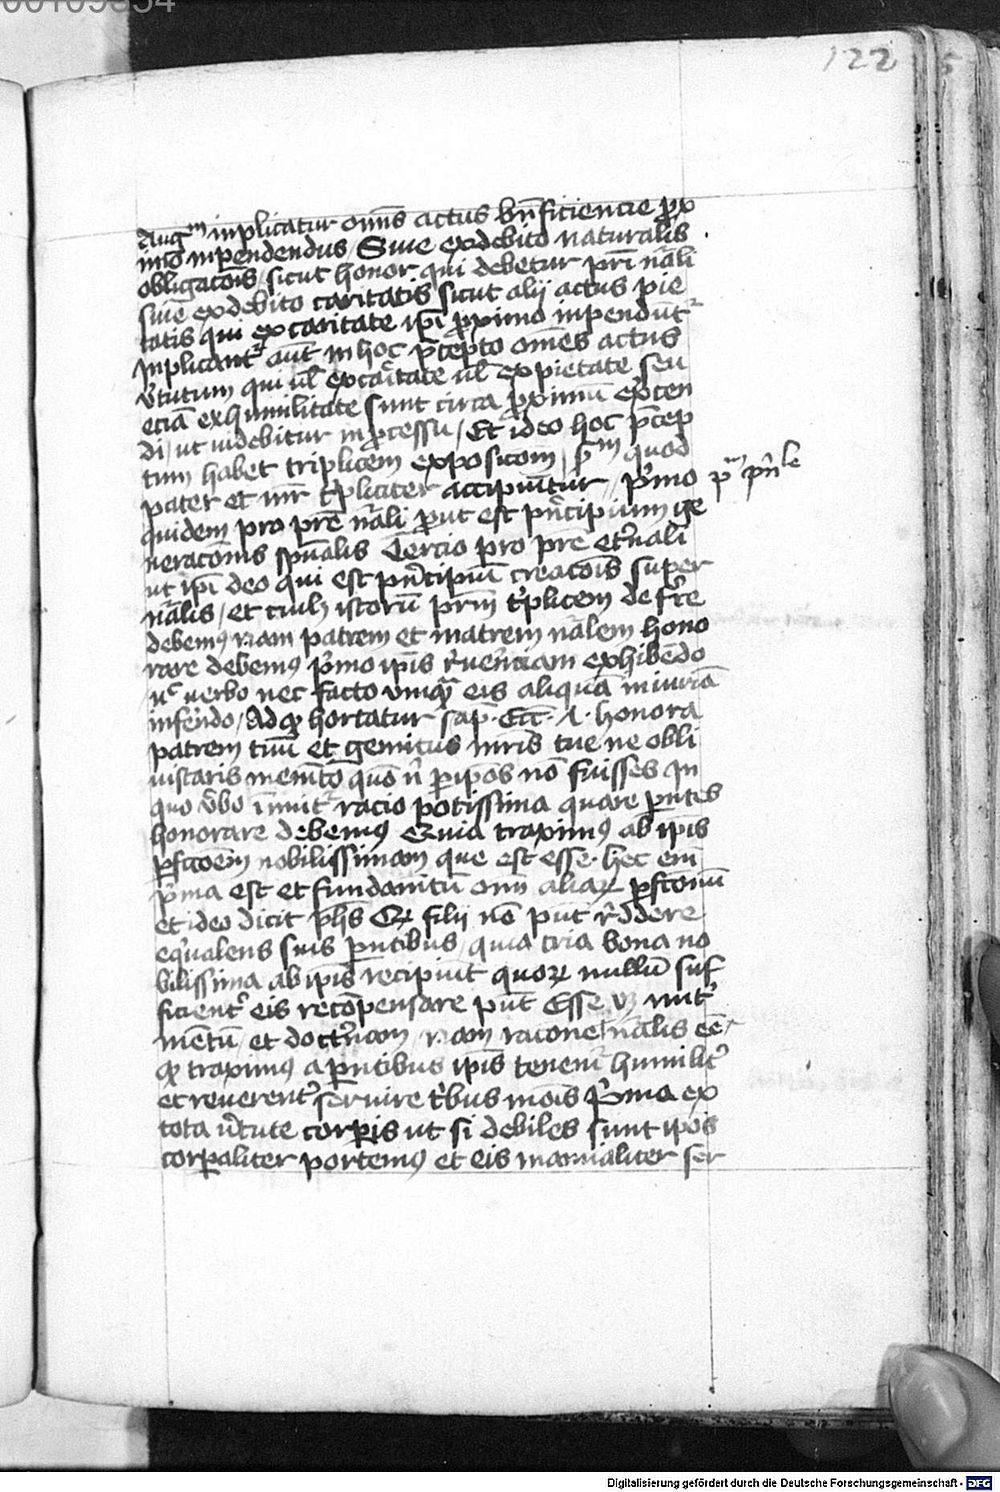 122
Augm implicatur omīs actus bn̄ficiencie prox
imo inpendendus / Siue ex debito naturalis
obligacōis / sicut honor qui debetur pr̄i nāli
siue ex debito caritatis sicut alij actus pie
tatis qui ex caritate ip̄i proximo inpendūt᷑
Inplicant᷑ aūt in hoc p̄cepto om̄es actus
v̓tutum qui ul̓ ex caritate ul̓ ex pietate seu
eciā ex humilitate sunt circa proximū exercen
di / ut uidebitur in processu / Et ideo hoc p̄cep
tum habet triplicem exposicōm / pm quod
pater et mr̄ tͥpliciter accipiūtur / pͥmo
quidem pro pr̄e nāli prout est pͥncipium ge
neracōnis spūalis Tercio pro pr̄e et̓nali
ut ip̄i deo qui est pͥncipiū creacōis super
nālis / et cuil; istorū pr̄m tͥplicem de fr̄e
debemꝰ nam patrem et matrem nālem hono
rare debemꝰ pͥmo ip̄is r̓uer̄nciam exhibēdo
nc verbo nec facto vmqͣ eis aliquā iniuriā
infer̄ndo / Ad qͦ hortatur sap̄. Ecc̄. honora
patrem tuū et gemitus mr̄is tue ne obli
uiscaris mem̄to quō nͥ per ip̄os nō fuisses In
quo v̓bo īnuit᷑ racio potissima quare pn̄tes
honorare debemꝰ Quia traximꝰ ab ip̄is
perfccōem nobilissimam que est esse. hec em̄
pͥma est et fundam̄tū om̄ aliaꝝ perfconū
et ideo dicit ph̄s Qꝫ filij nō pn̄t r̓ddere
eq̓ualens suis pn̄tibus / quia tria bona no
bilissima ab ip̄is recipiūt quoꝝ nullū suf
ficient̓ eis recōpensare pn̄t Esse vꝫ nut̓
mentū / et doctr̓nam / nam racone nālis eē
qͦ traximꝰ a pn̄tibus ip̄is tenem᷑ humilit̓
et reuerent̓ seruire tͥbus mōis Pͥma ex
tota v̓tute corpis ut si debiles sunt ip̄os
corpaliter portemꝰ et eis manualiter ser
Digitalisierung gefördert durch die Deutsche Forschungsgemeinschaft - DFG